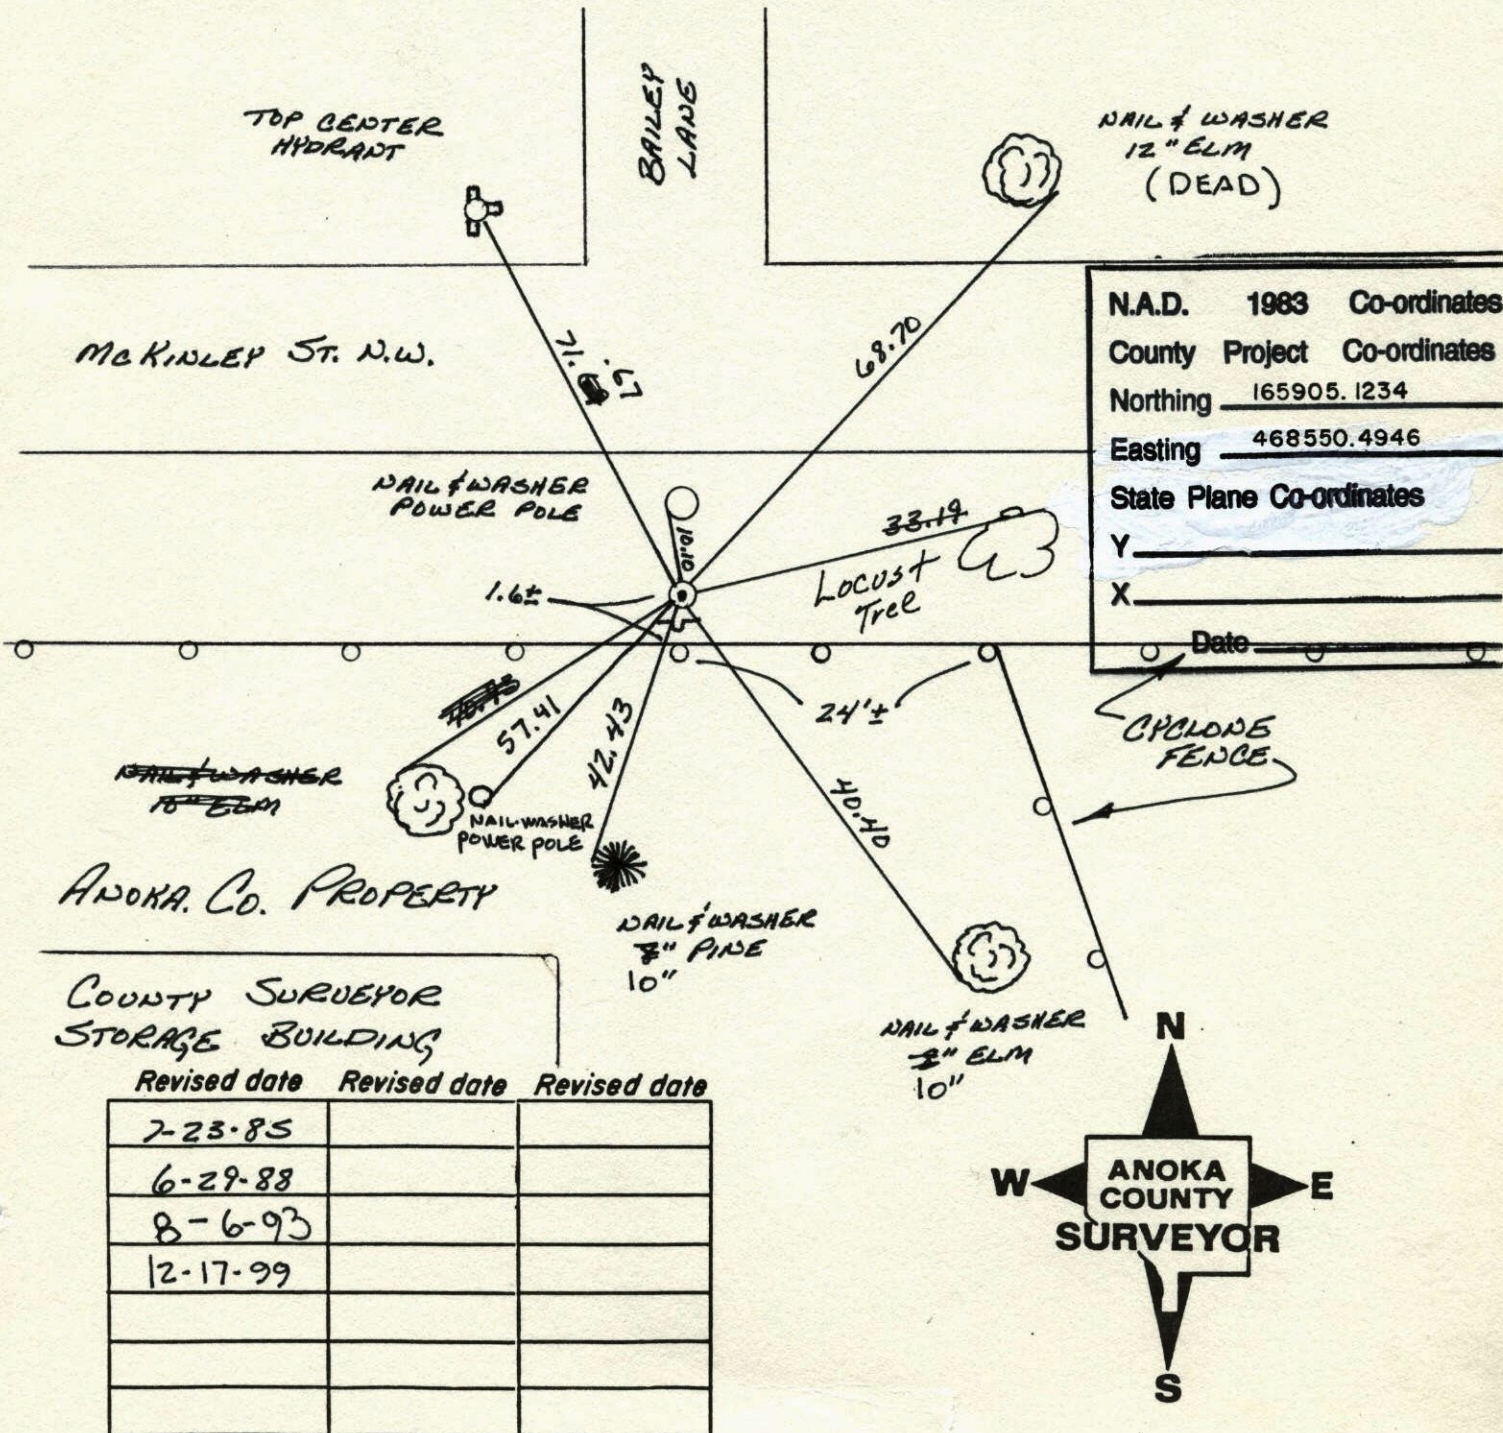 TOP CENTER
HYDRANT
BAILEY
LANE
NAIL & WASHER
12" ELM
(DEAD)
McKINLEY ST. N.W.
71.
.67
68.70
N.A.D. 1983 Co-ordinates
County Project Co-ordinates
Northing 165905.1234
Easting 468550.4946
State Plane Co-ordinates
Y
X
Date
NAIL & WASHER
POWER POLE
10.10
33.19
Locust
Tree
1.6±
24'±
57.41
42.43
40.40
CYCLONE
FENCE
NAIL & WASHER
10" ELM
NAIL-WASHER
POWER POLE
ANOKA. CO. PROPERTY
NAIL & WASHER
" PINE
10"
NAIL & WASHER
" ELM
10"
COUNTY SURVEYOR
STORAGE BUILDING
Revised date Revised date Revised date
7-23-85
6-29-88
8-6-93
12-17-99
N
W
E
S
ANOKA
COUNTY
SURVEYOR